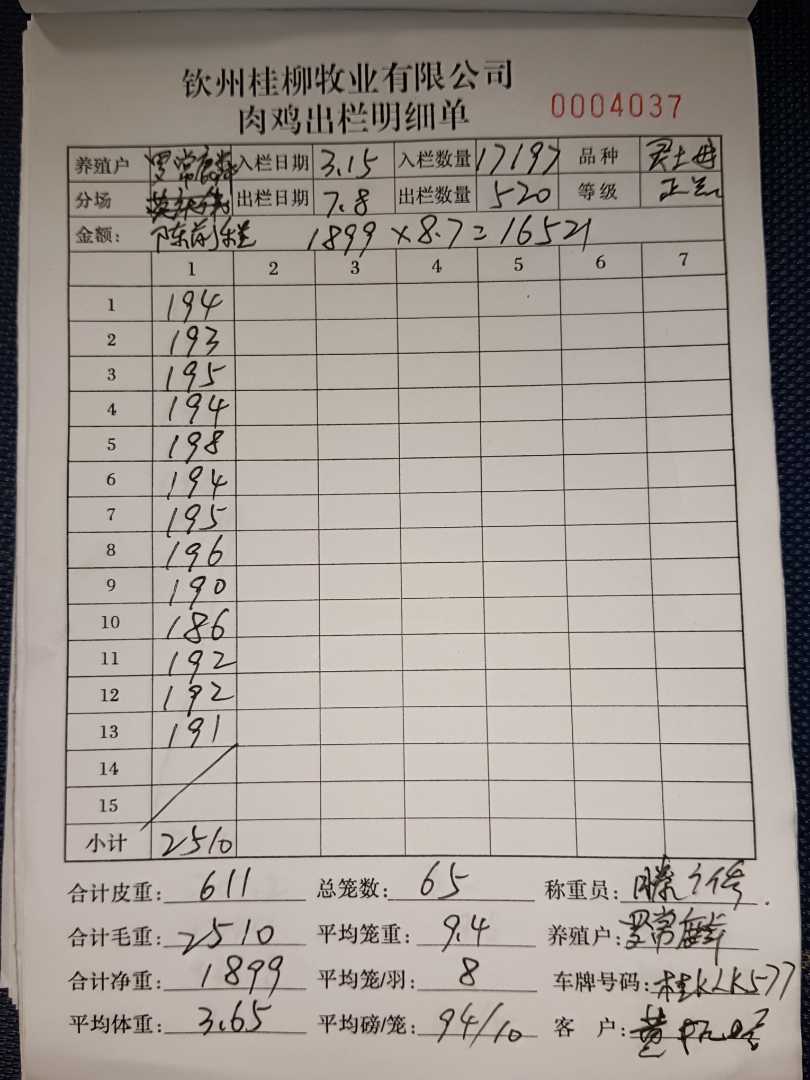 钦州桂柳牧业有限公司
肉鸡出栏明细单 0004037
养殖户 入栏日期 3.15 入栏数量 17197 品种
分场 出栏日期 7.8 出栏数量 520 等级
金额: 1899×8.7=16521
1 2 3 4 5 6 7
1 194
2 193
3 195
4 194
5 198
6 194
7 195
8 196
9 190
10 186
11 192
12 192
13 191
14
15
小计 2510
合计皮重: 611 总笼数: 65 称重员:
合计毛重: 2510 平均笼重: 9.4 养殖户:
合计净重: 1899 平均笼/羽: 8 车牌号码: 桂KLK577
平均体重: 3.65 平均磅/笼: 94/10 客 户: